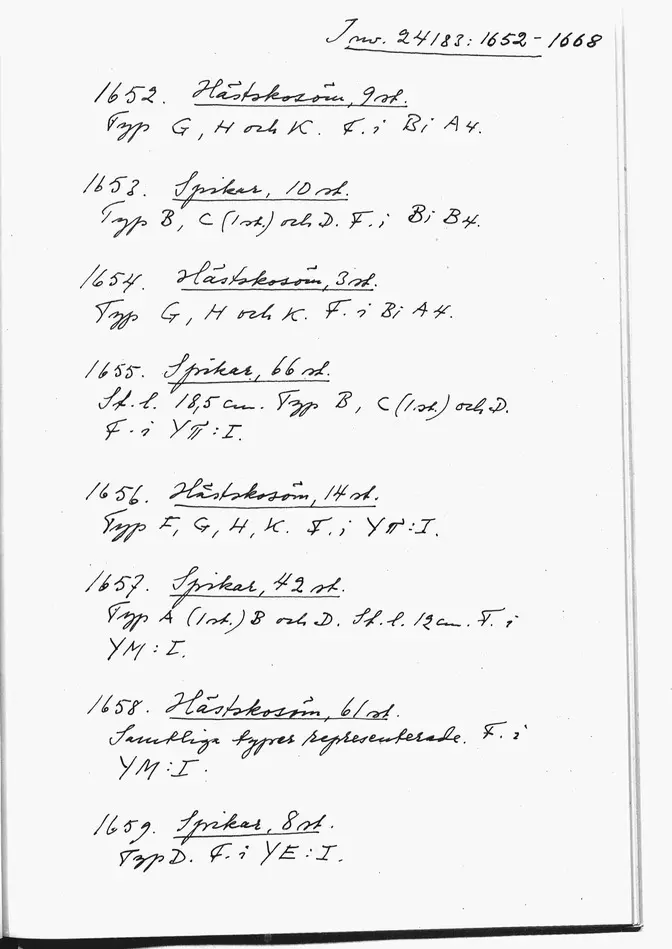 Inv. 24183:1652-1668
1652. Hästskosöm, 9 st.
Typ G, H och K. F. i Bi A4.
1653. Spikar, 10 st.
Typ B, C (1 st.) och D. F. i Bi B4.
1654. Hästskosöm, 3 st.
Typ G, H och K. F. i Bi A4.
1655. Spikar, 66 st.
St. l. 18,5 cm. Typ B, C (1 st.) och D.
F. i YΠ:I.
1656. Hästskosöm, 14 st.
Typ F, G, H, K. F. i YΠ:I.
1657. Spikar, 42 st.
Typ A (1 st.) B och D. St. l. 12 cm. F. i
YM:I.
1658. Hästskosöm, 61 st.
Samtliga typer representerade. F. i
YM:I.
1659. Spikar, 8 st.
Typ D. F. i YE:I.